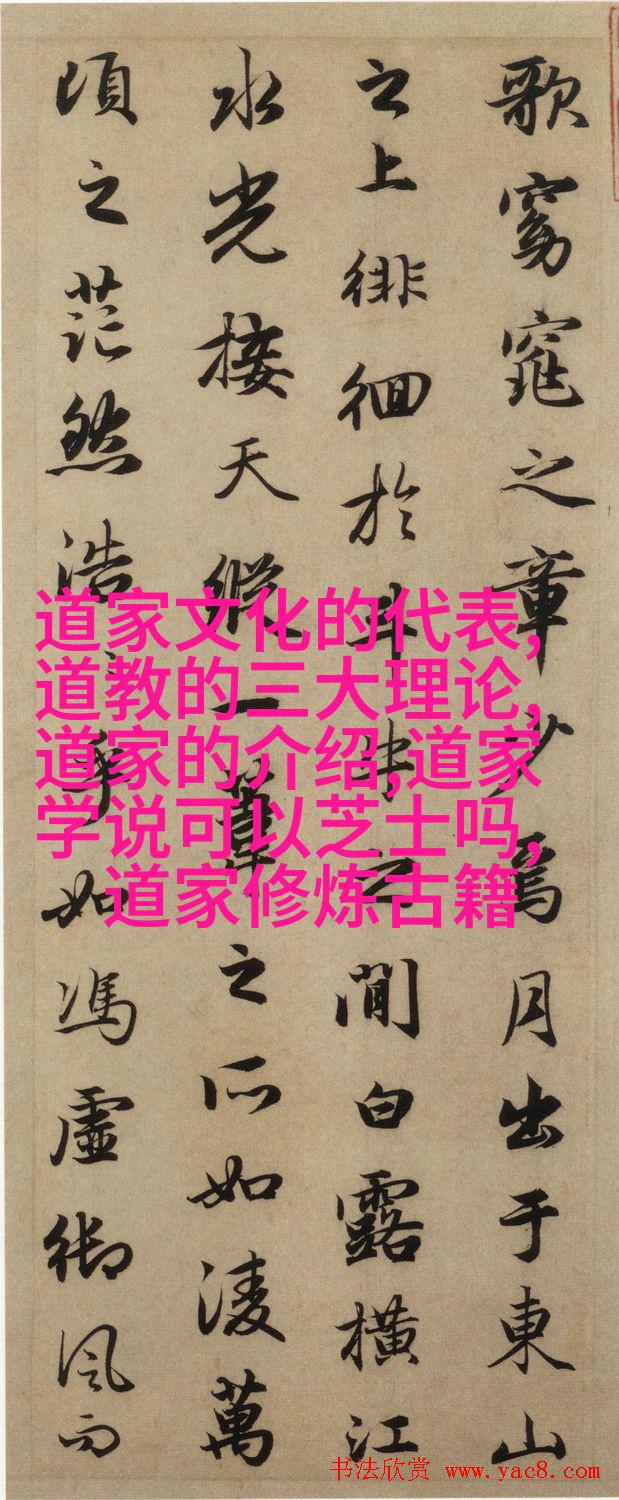 歌窈窕之章少焉月出于東山
之上徘徊於斗牛之間白露橫江
水光接天縱一葦之所如淩萬
頃之茫然浩浩乎如馮虛御風而
道家文化的代表,
道教的三大理论,
道家的介绍,道家
学说可以芝士吗,
道家修炼古籍
书法欣赏 www.yac8.com